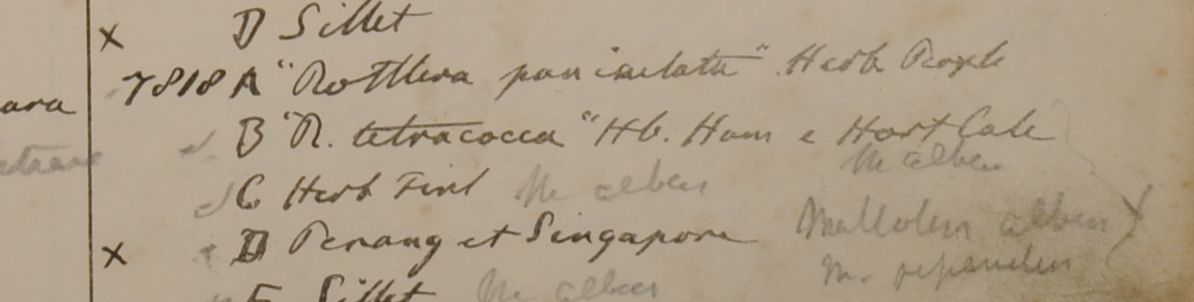 x D Sillet
7818 A "Rottlera paniculata" Herb Roxb
ara
B "R. tetracocca" Hb. Ham e Hort Calc
M albus
C Herb Finl M albus
x D Penang et Singapore Mallotus albus
M. repandus
E Sillet M albus